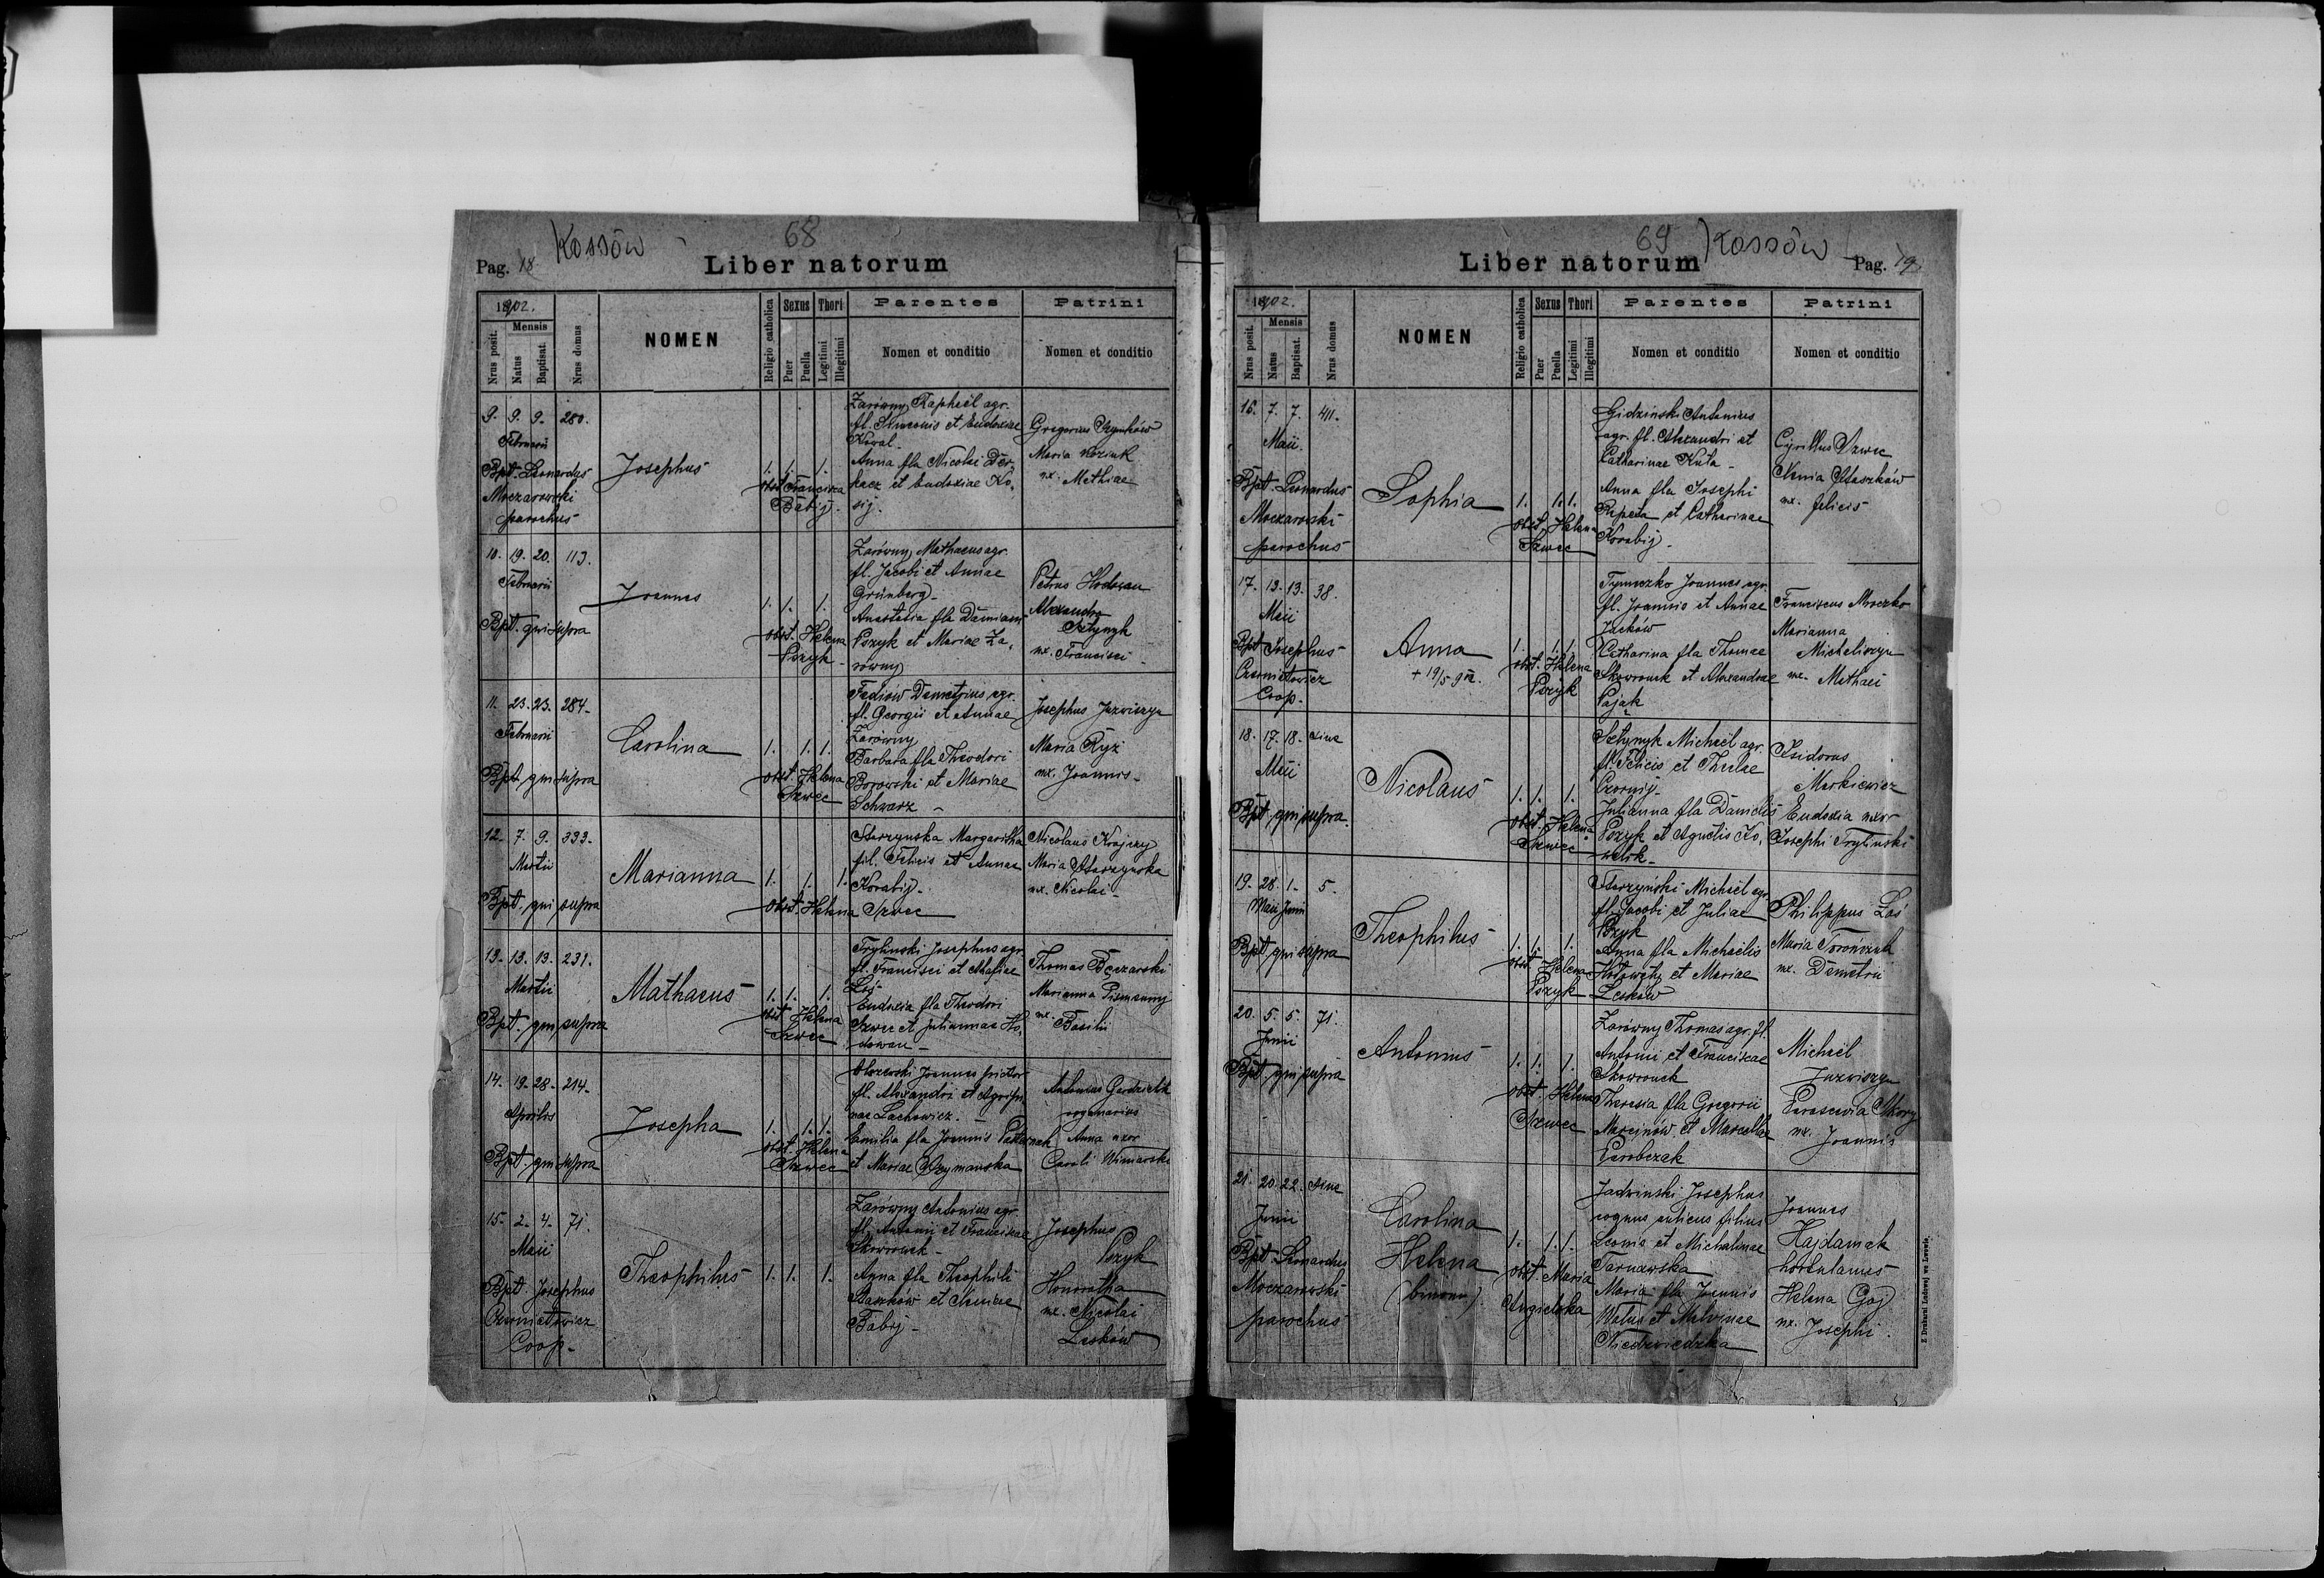 Kossów
68
Pag. 18
Liber natorum
1902.
Nrus posit.
Mensis
Natus
Baptisat.
Nrus domus
NOMEN
Religio catholica
Sexus
Puer
Puella
Thori
Legitimi
Illegitimi
Parentes
Nomen et conditio
Patrini
Nomen et conditio
9. 9. 9. 280.
Februarii
Bpt. Leonardus
Moczarowski
parochus
Josephus
1. 1. 1.
obst. Francisca
Babij.
Zarówny Raphaël agr.
fl. Simeonis et Eudoxiae
Koval.
Anna fla Nicolai Der,
kacz et Eudoxiae Ko,
sij.
Gregorius
Maria
ux. Mathiae
10. 19. 20. 113.
Februarii
Bpt. qui supra
Joannes
1. 1. 1.
obst. Helena
Pszyk
Zarówny Mathaeus agr.
fl. Jacobi et Annae
Grünberg
Anastasia fla Damiani
Pszyk et Mariae Za,
równy
Petrus Hodowan
Alexandra
Sztynyk
ux. Francisci
11. 23. 23. 284.
Februarii
Bpt. qui supra
Carolina
1. 1. 1.
obst. Helena
Szwec
Fediów Demetrius agr.
fl. Georgii et Annae
Zarówny
Barbara fla Theodori
Borowski et Mariae
Schwarz
Josephus Juzwiszyn
Maria Ryż
ux. Joannis
12. 7. 9. 333.
Martii
Bpt. qui supra
Marianna
1. 1. 1.
obst. Helena Szwec
Starzynska Margaritha
fil. Felicis et Annae
Korabij.
Nicolaus Krajczy
Maria Starzynska
ux. Nicolai
13. 13. 13. 231.
Martii
Bpt. qui supra
Mathaeus
1. 1. 1.
obst. Helena
Szwec
Trylinski Josephus agr.
fl. Francisci et Mariae
Łoś
Eudoxia fla Theodori
Szwec et Juliannae Ho,
dowan
Thomas Bęczarski
Marianna Pismenny
ux.
Basilii
14. 19. 28. 214.
Aprilis
Bpt. qui supra
Josepha
1. 1. 1.
obst. Helena
Szwec
Olszewski Joannes pictor
fl. Alexandri et Agripi,
nae Lachowicz.
Emilia fla Joannis Pasternak
et Mariae Szymanska
Antonius
Anna uxor
Caroli Winiarski
15. 2. 4. 71.
Maii
Bpt. Josephus
Coop.
Theophilus
1. 1. 1.
Zarówny Antonius agr.
fl. Antonii et Franciscae
Skowronek
Anna fla Theophili
Staszków et Xeniae
Babij
Josephus
Pszyk
Honoratha
ux. Nicolai
Lesków
69
Kossów
Liber natorum
Pag. 19
1902.
Nrus posit.
Mensis
Natus
Baptisat.
Nrus domus
NOMEN
Religio catholica
Sexus
Puer
Puella
Thori
Legitimi
Illegitimi
Parentes
Nomen et conditio
Patrini
Nomen et conditio
16. 7. 7. 411.
Maii.
Bpt. Leonardus
Moczarowski
parochus
Sophia
1. 1. 1.
obst. Helena
Szwec
Gidziński Antonius
agr. fl. Alexandri et
Catharinae Kuta
Anna fla Josephi
Rzpeta et Catharinae
Korabij
Cyrillus Szwec
Xenia Staszków
ux. Felicis
17. 13. 13. 38.
Maii
Bpt. Josephus
Coop.
Anna
+ 19/5 902.
1. 1. 1.
obst. Helena
Pszyk
Tymeczko Joannes agr.
fl. Joannis et Annae
Jacków
Catharina fla Thomae
Skowronek et Alexandrae
Pająk
Franciscus Mroczko
Marianna
Micheliszyn
ux. Mathaei
18. 17. 18. sine
Maii
Bpt. qui supra.
Nicolaus
1. 1. 1.
obst. Helena
Szwec
Sztynyk Michaël agr.
fl. Felicis et Theclae
Czornij
Julianna fla Danielis
Pszyk et Agnetis Ko,
Isidorus
Markiewicz
Eudoxia uxor
Josephi Trylinski
19. 28. 1. 5.
Maii Junii
Bpt. qui supra
Theophilus
1. 1. 1.
obst. Helena
Pszyk
Starzyński Michaël agr.
fl. Jacobi et Juliae
Pszyk
Anna fla Michaëlis
et Mariae
Lesków
Philippus Łoś
Maria Toronczuk
ux. Demetrii
20. 5. 5. 71.
Junii
Bpt. qui supra
Antonius
1. 1. 1.
obst. Helena
Szwec
Zarówny Thomas agr. fl.
Antonii et Franciscae
Skowronek
Theresia fla Gregorii
Marcinów et Marcellae
Parobczak
Michaël
Juzwiszyn
Parascevia Skory
ux. Joannis
21. 20. 22. sine
Junii
Bpt. Leonardus
Moczarowski
parochus
Carolina
Helena
(binom.)
1. 1. 1.
obst. Maria
Angielska
Jadzinski Josephus
coquus aulicus filius
Leonis et Michalinae
Tarnawska
Maria fla Joannis
Watus et Malvinae
Niedzwiedzka
Joannes
Hajdamak
hortulanus
Helena Gaj
ux. Josephi.
Z Drukarni Ludowej we Lwowie.